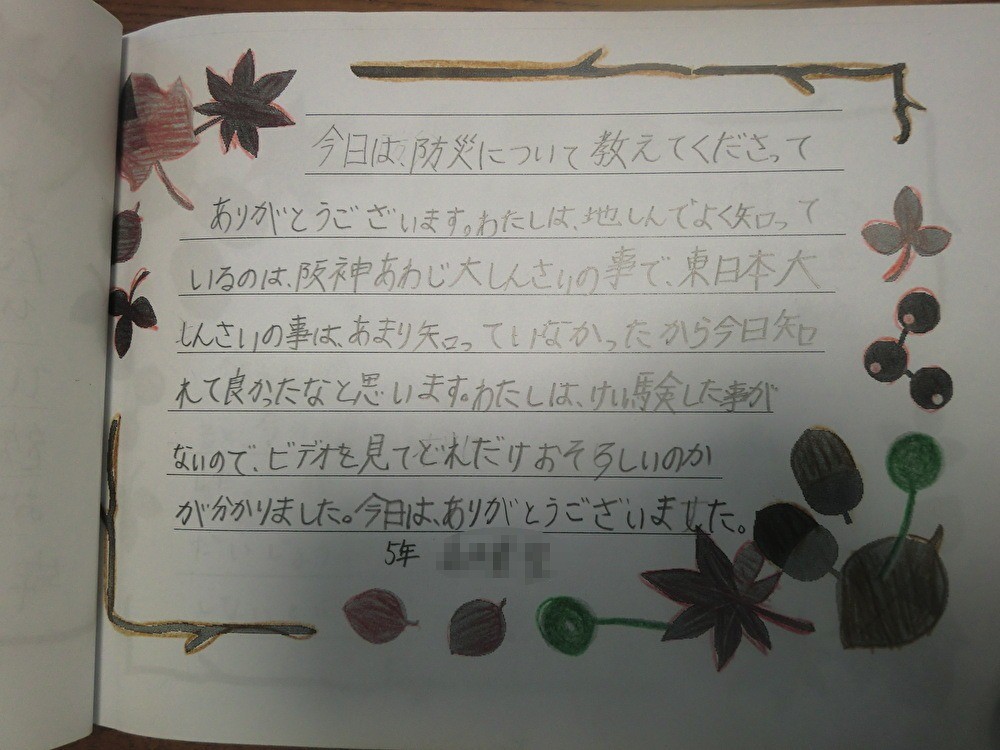 今日は、防災について教えてくださって
ありがとうございます。わたしは、地しんでよく知って
いるのは、阪神あわじ大しんさいの事で、東日本大
しんさいの事は、あまり知っていなかったから今日知
れて良かったなと思います。わたしは、けい験した事が
ないので、ビデオを見てどれだけおそろしいのか
が分かりました。今日は、ありがとうございました。
5年